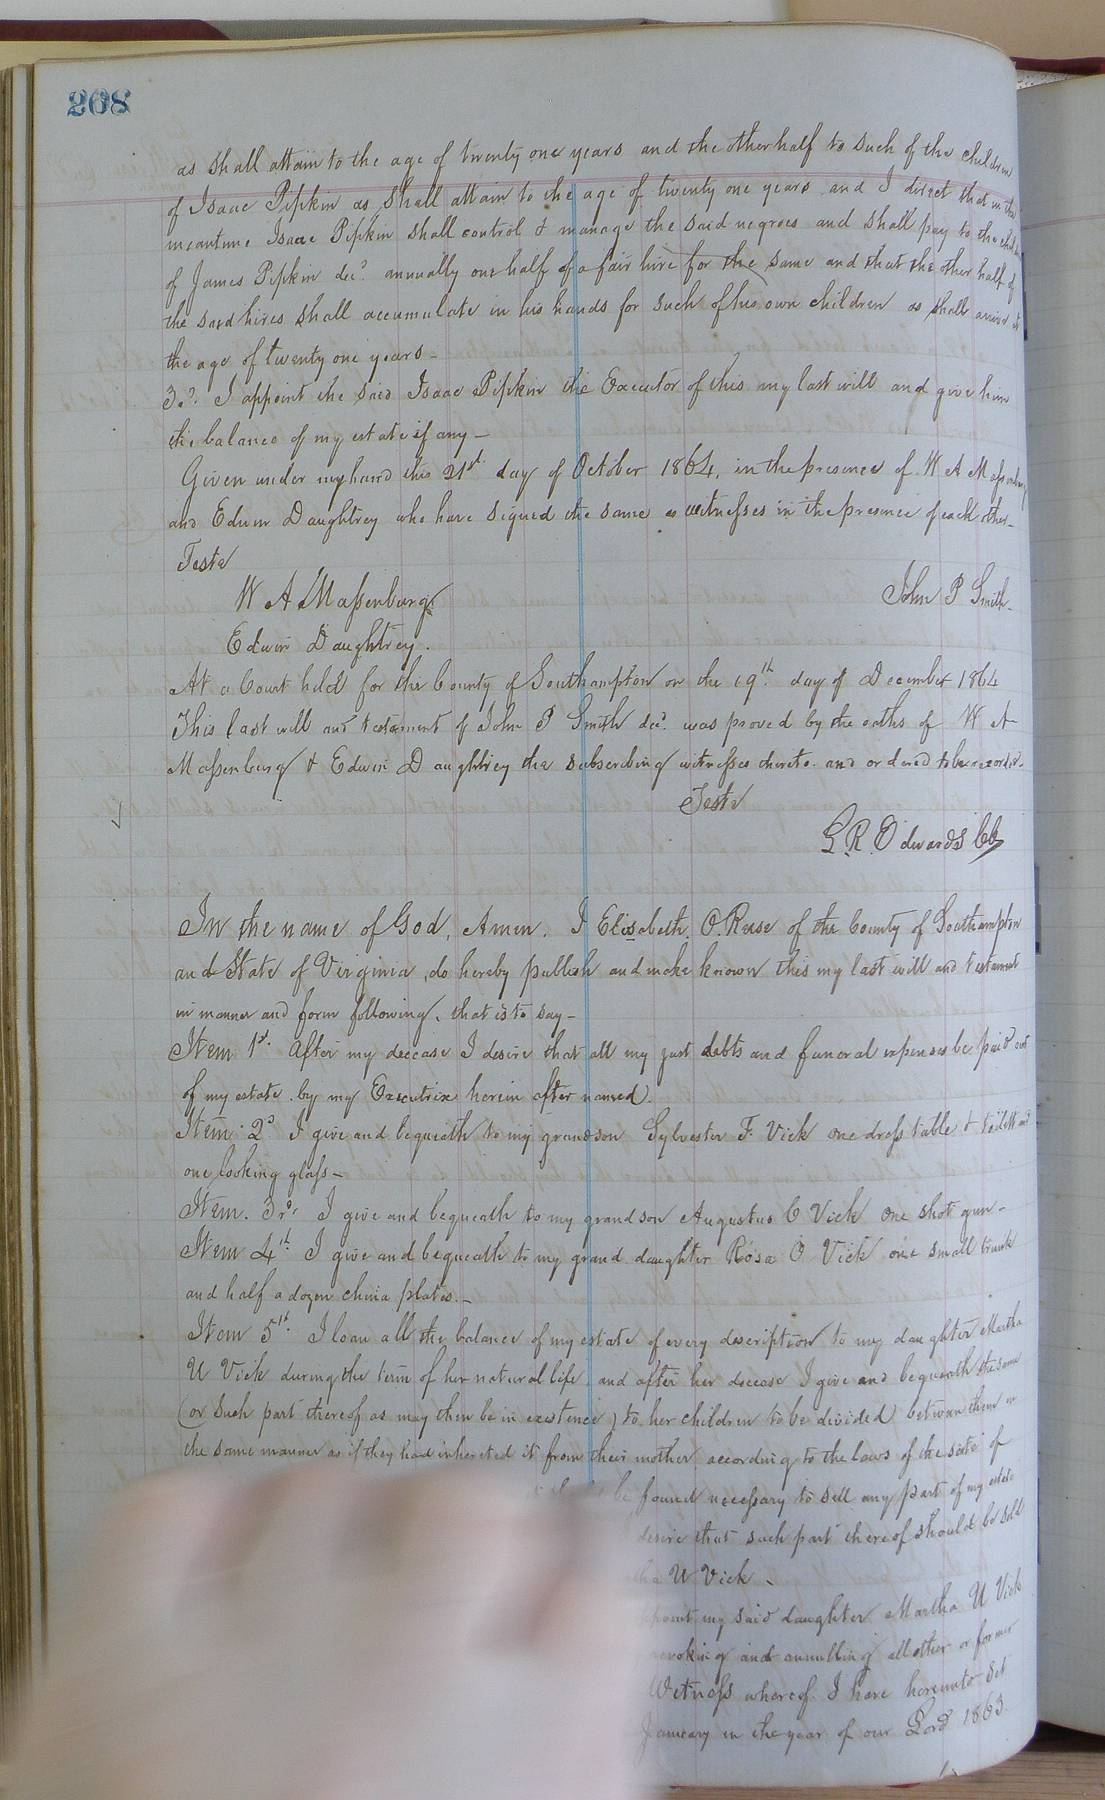 268
as shall attain to the age of twenty one years and the other half to such of the children
of Isaac Pipkin as shall attain to the age of twenty one years and I direct that in the
meantime Isaac Pipkin shall control & manage the said negroes and shall pay to the children
of James Pipkin decd. annually one half of a fair hire for the same and that the other half of
the said hires shall accumulate in his hands for such of his own children as shall arrive at
the age of twenty one years -
3d. I appoint the said Isaac Pipkin the Executor of this my last will and give him
the balance of my estate if any -
Given under my hand this 21st day of October 1864, in the presence of W A Massenburg
and Edwin Daughtrey who have signed the same as witnesses in the presence of each other -
Teste
W A Massenburg John P Smith -
Edwin Daughtrey.
At a Court held for the County of Southampton on the 19th day of December 1864
This last will and testament of John P Smith decd. was proved by the oaths of W A
Massenburg & Edwin Daughtrey the subscribing witnesses thereto and ordered to be recorded -
Teste
L. R. Edwards Clk
In the name of God, Amen. I Elisabeth O. Reese of the County of Southampton
and State of Virginia, do hereby publish and make known this my last will and testament
in manner and form following, that is to say -
Item 1st. After my decease I desire that all my just debts and funeral expenses be paid out
of my estate by my Executrix herein after named.
Item 2d I give and bequeath to my grandson Sylvester F. Vick one dress table & toilett and
one looking glass -
Item. 3rd. I give and bequeath to my grandson Augustus C Vick one shot gun -
Item 4th. I give and bequeath to my grand daughter Rosa O Vick one small trunk
and half a dozen china plates. -
Item 5th. I loan all the balance of my estate of every description to my daughter Martha
U Vick during the term of her natural life and after her decease I give and bequeath the same
(or such part thereof as may then be in existence) to her children to be divided between them in
the same manner as if they had inherected it from their mother according to the laws of the state of
be found necessary to sell any part of my estate
desire that such part thereof should be sold
U Vick -
my said daughter Martha U Vick
and annulling all other or former
Witness whereof I have hereunto set
January in the year of our Lord 1863.